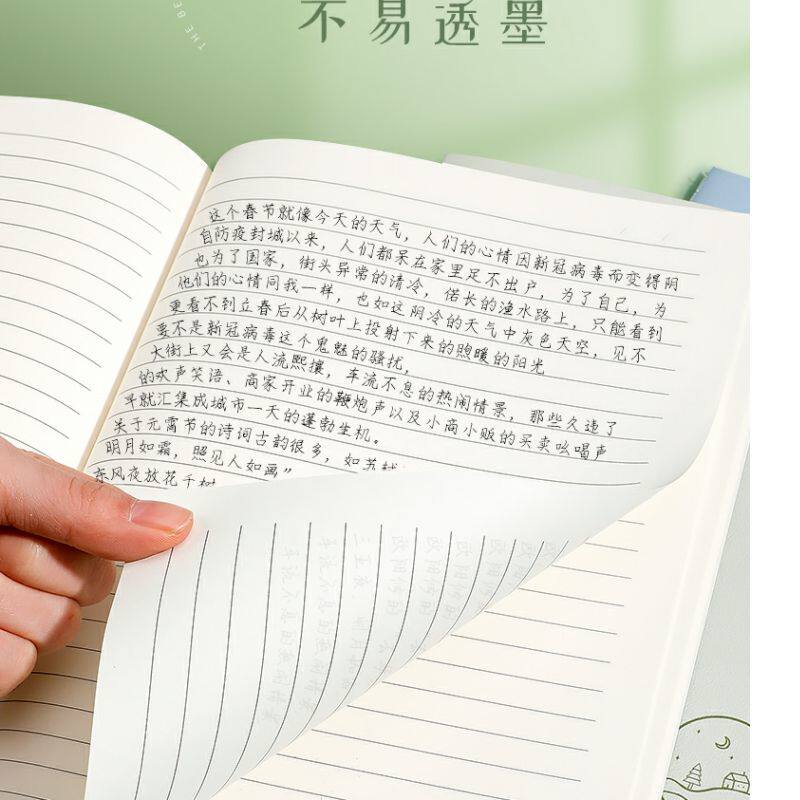 不易透墨
THE BE
这个春节就像今天的天气，人们的心情因新冠病毒而变得阴
自防疫封城以来，人们都呆在家里足不出户，为了自己，为
也为了国家，街头异常的清冷，偌长的渔水路上，只能看到
他们的心情同我一样，也如这阴冷的天气中灰色天空，见不
更看不到立春后从树叶上投射下来的煦暖的阳光
要不是新冠病毒这个鬼魅的骚扰，
大街上又会是人流熙攘，车流不息的热闹情景，那些久违了
的欢声笑语、商家开业的鞭炮声以及小商小贩的买卖吆喝声
早就汇集成城市一天的蓬勃生机。
关于元宵节的诗词古韵很多，如苏轼
明月如霜，照见人如画”
东风夜放花千树